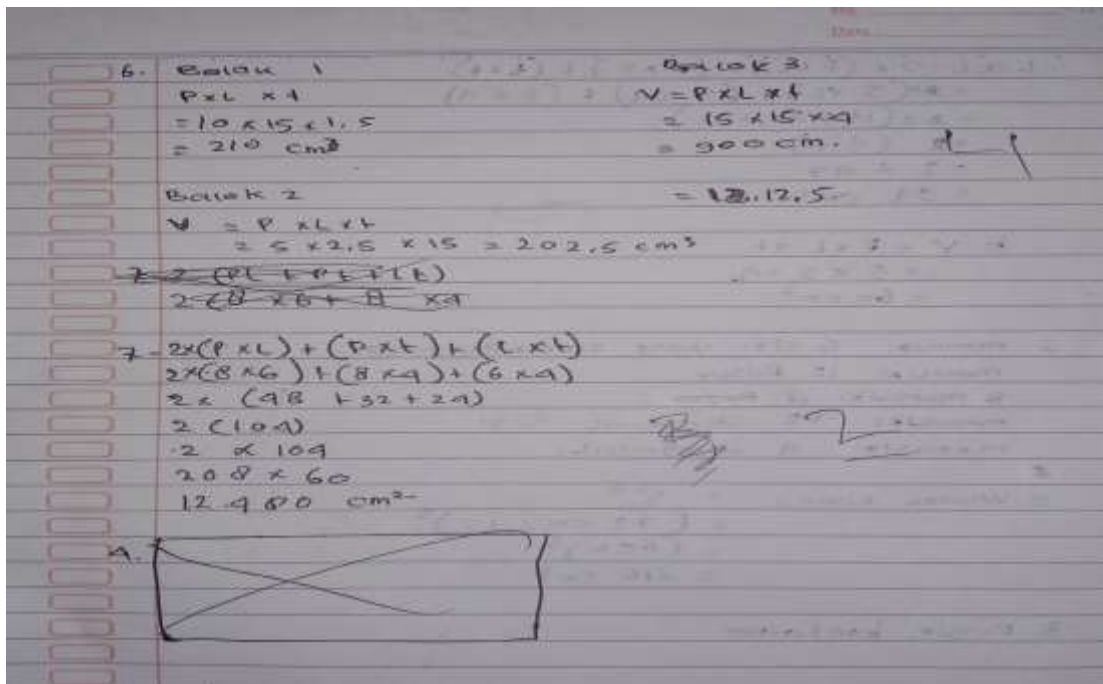 No
Date
6. Balok 1
PxL x t
= 10 x 15 x 1.5
= 210 cm3
Balok 3
V = P x L x t
= 15 x 15 x x 4
= 900 cm.
= 1312.5
Balok 2
V = P x L x t
= 5 x 2,5 x 15 = 202,5 cm3
7 2 (PL + Pt + Lt)
2 (8 x 6 + 8 x 4
7 - 2x(P x L) + (P x t) + (L x t)
2x(8 x 6) + (8 x 4) + (6 x 4)
2 x (48 + 32 + 24)
2 (104)
2 x 104
208 x 60
12.480 cm2
2
4.